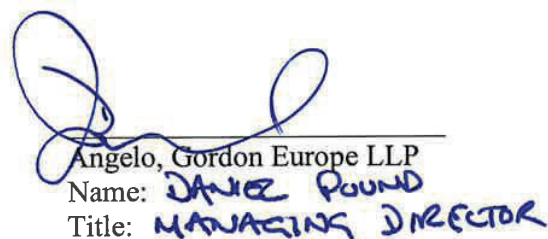 Angelo, Gordon Europe LLP
Name: DANIEL POUND
Title: MANAGING DIRECTOR